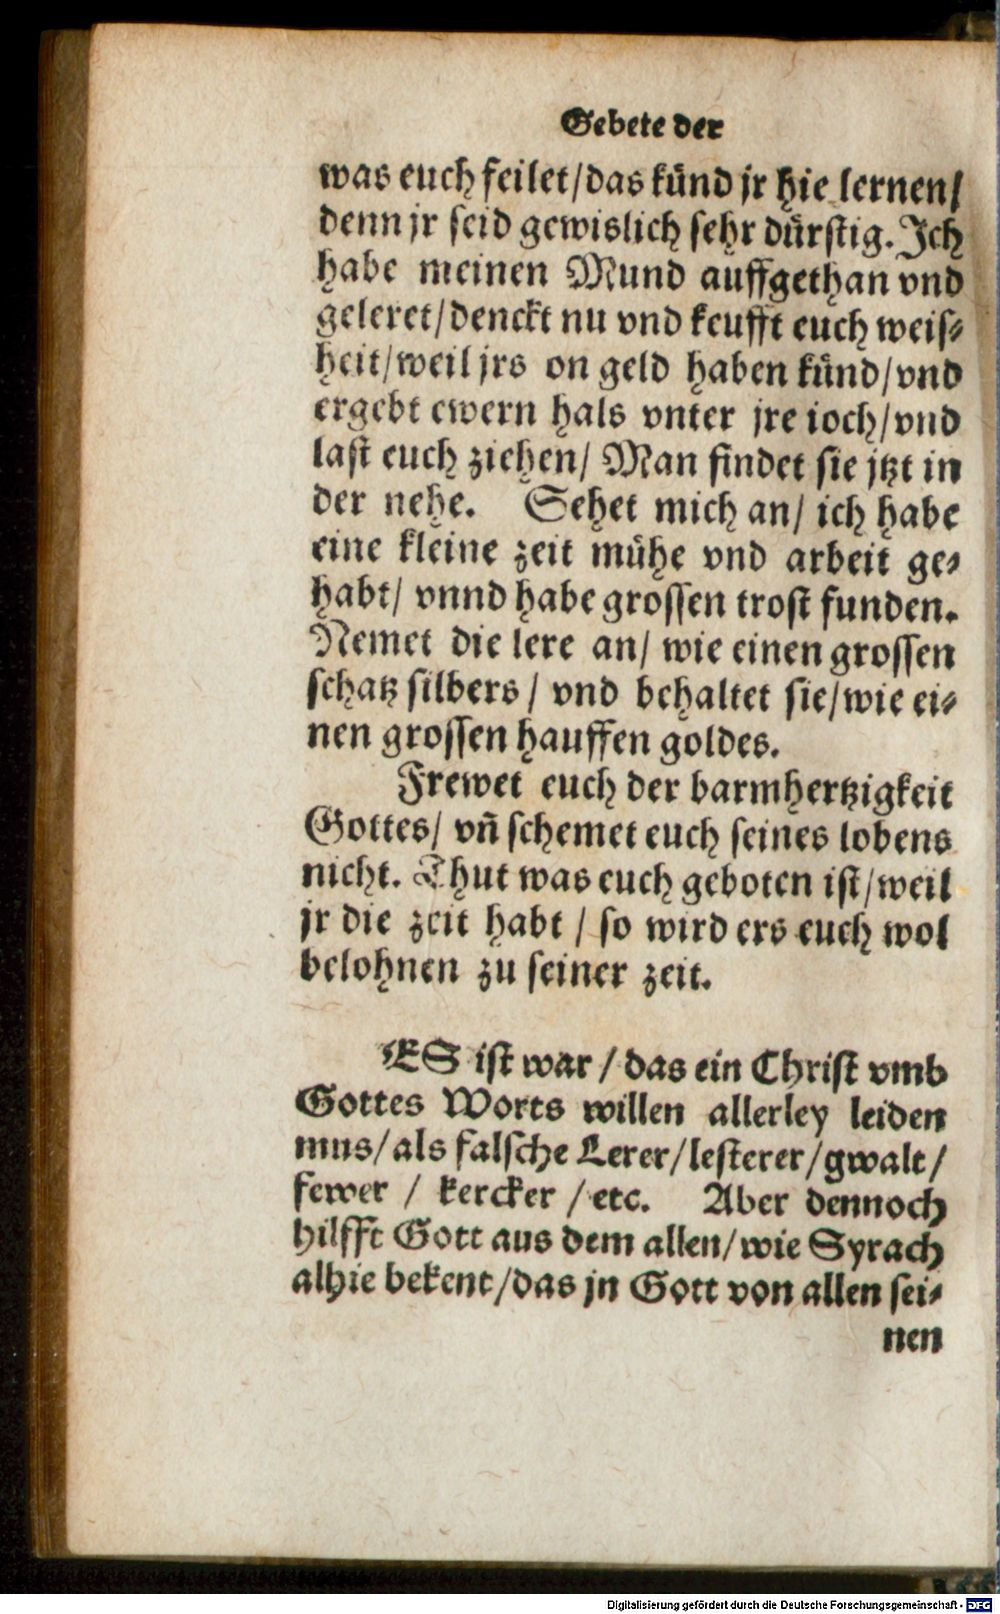 Gebete der
was euch feilet/das künd jr hie lernen/
denn jr seid gewislich sehr dürstig. Ich
habe meinen Mund auffgethan vnd
geleret/denckt nu vnd keufft euch weis⸗
heit/weil jrs on geld haben künd/vnd
ergebt ewern hals vnter jre ioch/vnd
last euch ziehen/ Man findet sie jtzt in
der nehe. Sehet mich an/ ich habe
eine kleine zeit mühe vnd arbeit ge⸗
habt/ vnnd habe grossen trost funden.
Nemet die lere an/ wie einen grossen
schatz silbers / vnd behaltet sie/wie ei⸗
nen grossen hauffen goldes.
Frewet euch der barmhertzigkeit
Gottes/ vñ schemet euch seines lobens
nicht. Thut was euch geboten ist/weil
jr die zeit habt / so wird ers euch wol
belohnen zu seiner zeit.
ES ist war / das ein Christ vmb
Gottes Worts willen allerley leiden
mus/als falsche Lerer/lesterer/gwalt/
fewer / kercker /etc. Aber dennoch
hilfft Gott aus dem allen/wie Syrach
alhie bekent/das jn Gott von allen sei⸗
nen
Digitalisierung gefördert durch die Deutsche Forschungsgemeinschaft - DFG